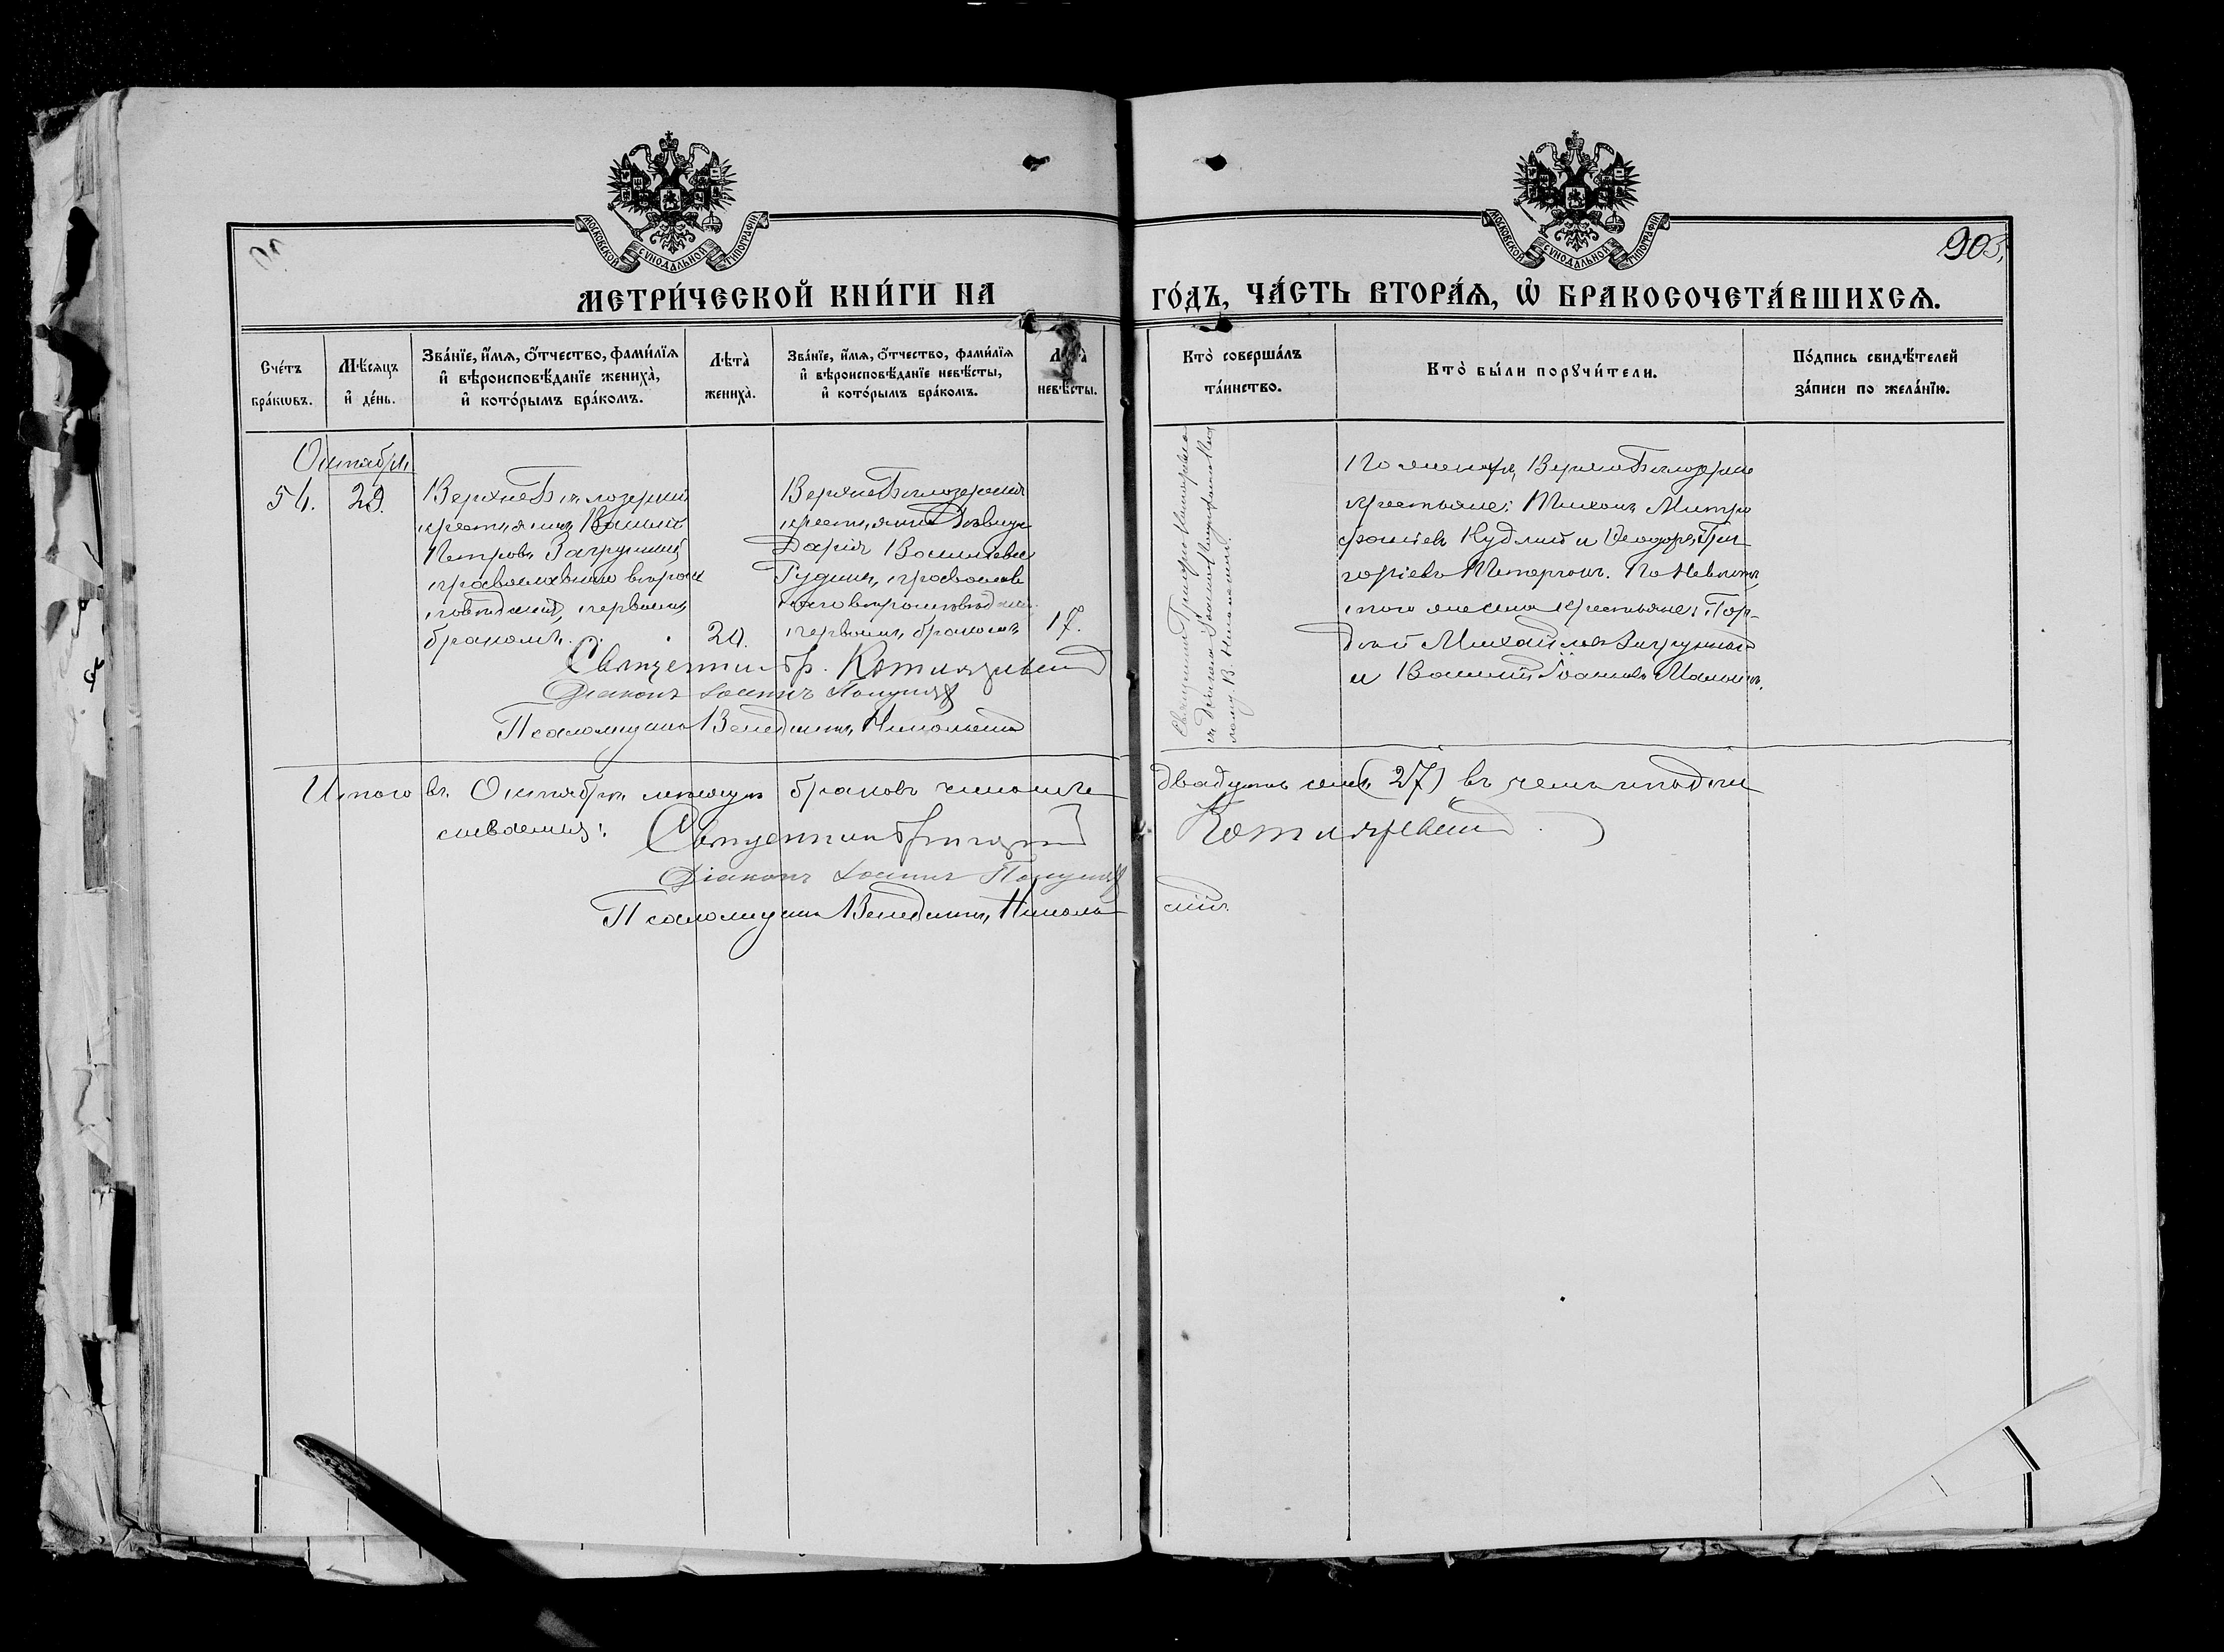 МОСКОВСКОЙ СѴНОДАЛЬНОЙ ТИПОГРАФІИ
МОСКОВСКОЙ СѴНОДАЛЬНОЙ ТИПОГРАФІИ
903,
МЕТРИ́ЧЕСКОЙ КНИ́ГИ НА
ГО́ДЪ, ЧА́СТЬ ВТОРА́Ѧ, Ѽ БРАКОСОЧЕТА́ВШИХСѦ.
Сче́тъ бра́кѡвъ.
Мѣ́сяцъ и҆ де́нь.
Зва́нїе, и҆́мѧ, ѻ҆́тчество, фами́лїѧ
и҆ вѣроисповѣ́данїе жениха̀,
и҆ кото́рымъ бра́комъ.
Лѣта̀ жениха̀.
Зва́нїе, и҆́мѧ, ѻ҆́тчество, фами́лїѧ
и҆ вѣроисповѣ́данїе невѣ́сты,
и҆ кото́рымъ бра́комъ.
невѣ́сты.
Кто̀ соверша́лъ
та́инство.
Кто̀ бы́ли порꙋчи́тели.
По́дпись свидѣ́телей
за́писи по жела́нїю.
Октябрь
54.
29.
Верхне Бѣлозерскій
крестьянинъ Василій
Петровъ Загрунный
православнаго вѣроис
повѣданія, первымъ
бракомъ.
20.
Верхне Бѣлозерская
крестьянка дѣвица
Дарія Васильева
Гудимъ, православ
наго вѣроисповѣданія
первымъ бракомъ
17.
Священникъ Гр. Котляревскій
Діаконъ Іоаннъ
Псаломщикъ Венедиктъ Никольскій
По женихѣ, Верхне Бѣлозерскіе
крестьяне: Тихонъ Митро
фановъ Кудлай и Ѳеодоръ Гри
горіевъ По невѣстѣ
того же села крестьяне: Гор-
дѣй Михайловъ Загрунный
и Василій Іоанновъ
Священникъ Григорій Котляревскій
съ Діакономъ Іоанномъ
В. Никольскимъ.
Итого въ Октябрѣ мѣсяцѣ браковъ числомъ двадцать семь (27) въ чемъ и подпи
сываемся:
Священникъ Григорій Котляревскій
Діаконъ Іоаннъ
Псаломщикъ Венедиктъ Никольскій